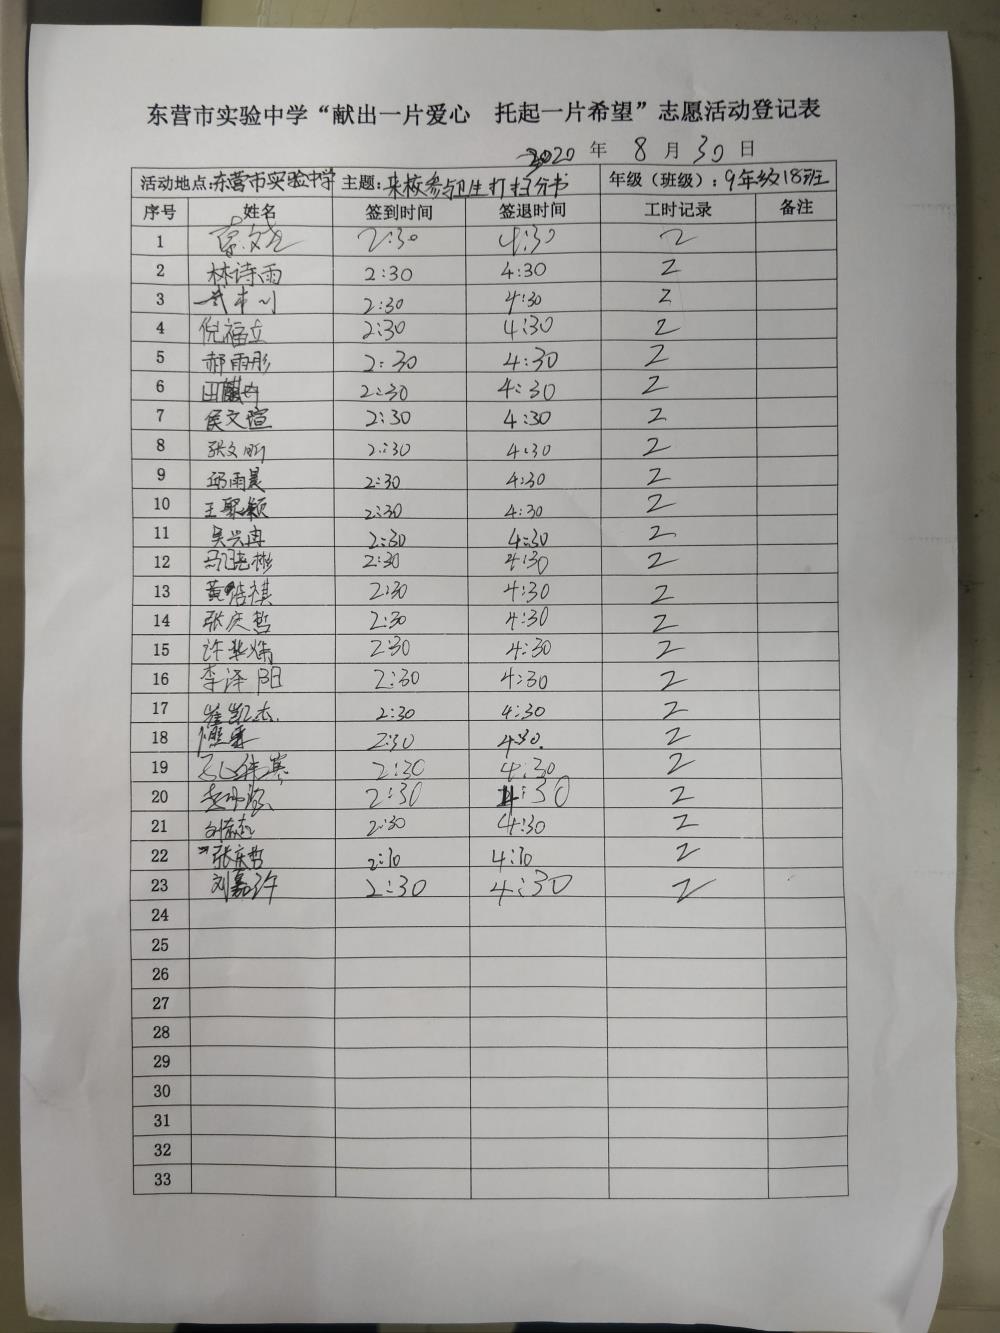 东营市实验中学“献出一片爱心 托起一片希望”志愿活动登记表
2020 年 8 月 30 日
活动地点:东营市实验中学 主题:来校参与卫生打扫分书 年级（班级）:9年级18班
序号 姓名 签到时间 签退时间 工时记录 备注
1 2:30 4:30 2
2 林诗雨 2:30 4:30 2
3 2:30 4:30 2
4 倪福立 2:30 4:30 2
5 郝雨彤 2:30 4:30 2
6 田麒 2:30 4:30 2
7 侯文瑄 2:30 4:30 2
8 张文昕 2:30 4:30 2
9 邱雨晨 2:30 4:30 2
10 王聚颖 2:30 4:30 2
11 吴兴冉 2:30 4:30 2
12 马晓彬 2:30 4:30 2
13 黄浩祺 2:30 4:30 2
14 张庆哲 2:30 4:30 2
15 许华 2:30 4:30 2
16 李泽阳 2:30 4:30 2
17 崔凯杰. 2:30 4:30 2
18 2:30 4:30. 2
19 2:30 4:30 2
20 2:30 4:30 2
21 刘 2:30 4:30 2
22 张东哲 2:30 4:30 2
23 刘嘉许 2:30 4:30 2
24
25
26
27
28
29
30
31
32
33